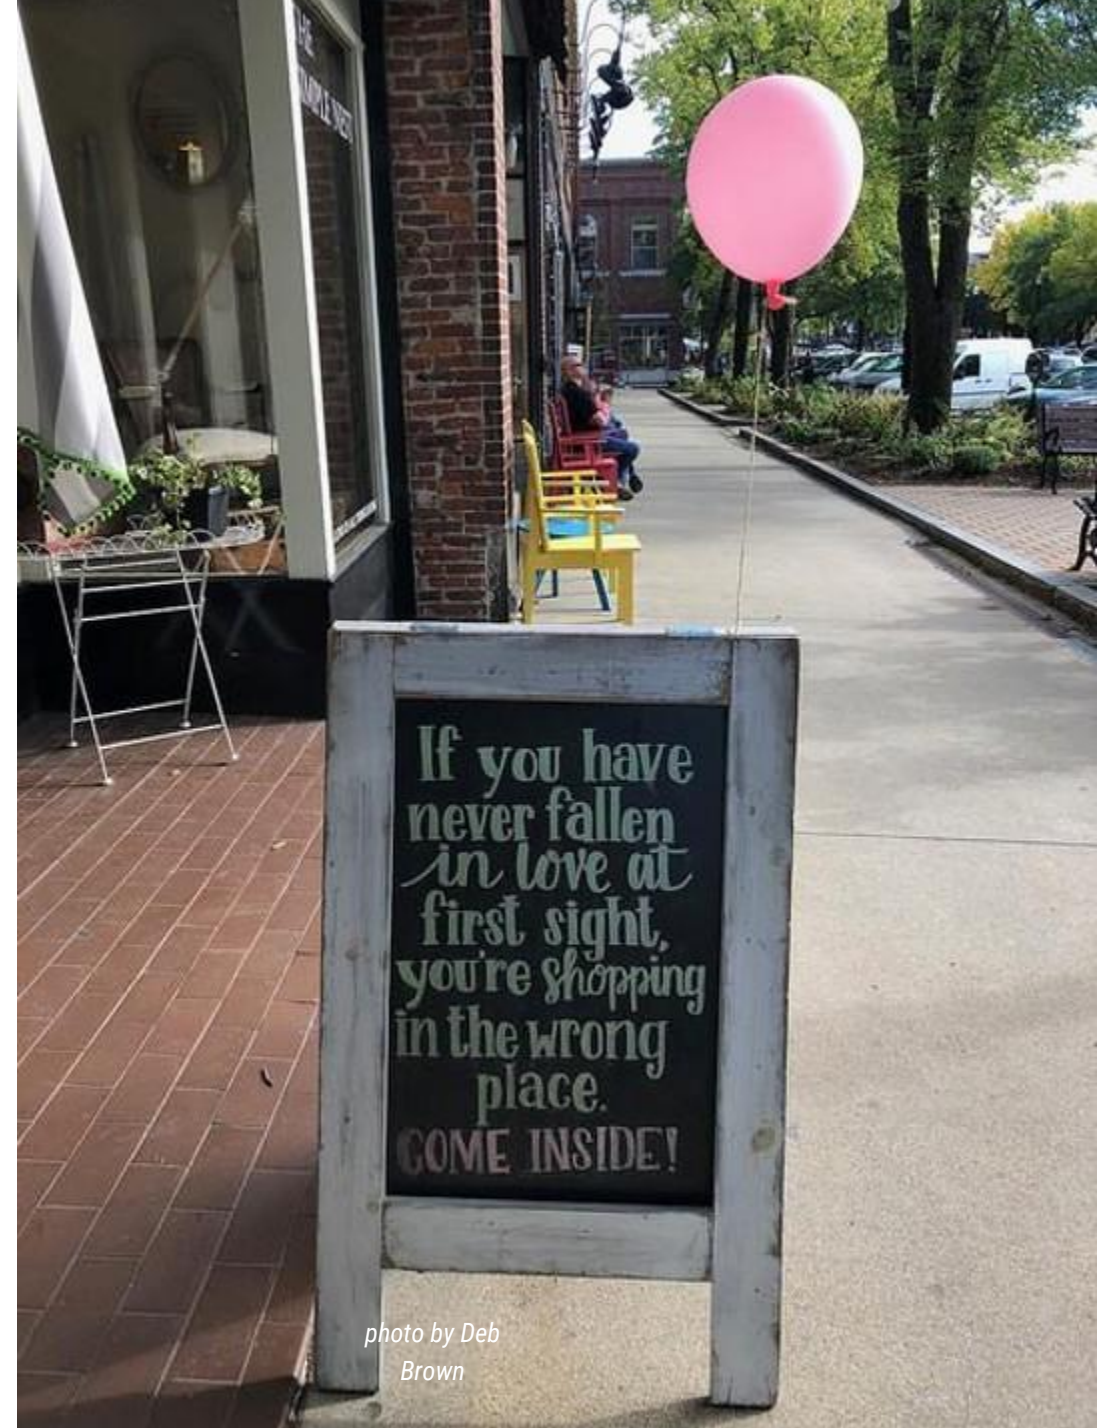 If you have
never fallen
in love at
first sight,
you're shopping
in the wrong
place.
COME INSIDE!
photo by Deb
Brown